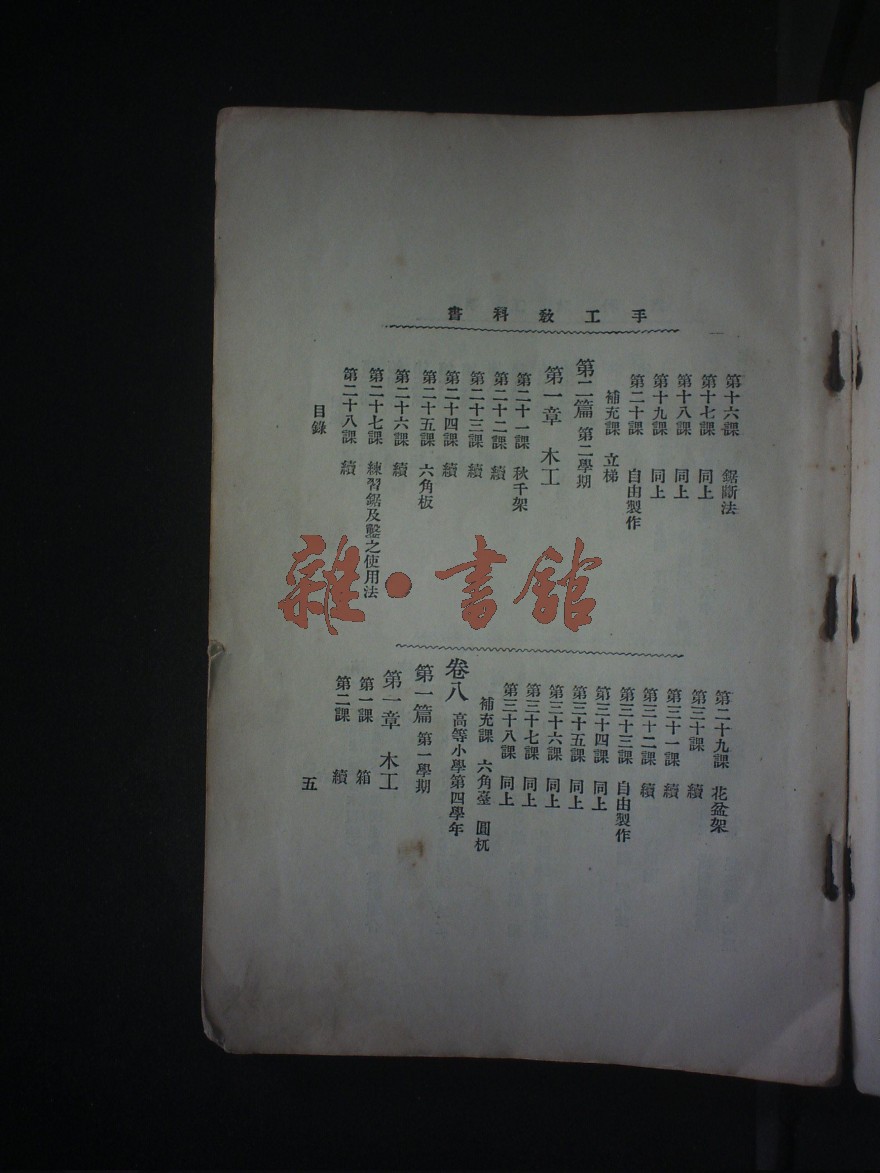 手工教科書
第十六課 鋸斷法
第十七課 同上
第十八課 同上
第十九課 同上
第二十課 自由製作
補充課 立梯
第二篇 第二學期
第一章 木工
第二十一課 秋千架
第二十二課 續
第二十三課 續
第二十四課 續
第二十五課 六角板
第二十六課 續
第二十七課 練習鋸及鑿之使用法
第二十八課 續
目錄
第二十九課 花盆架
第三十課 續
第三十一課 續
第三十二課 續
第三十三課 自由製作
第三十四課 同上
第三十五課 同上
第三十六課 同上
第三十七課 同上
第三十八課 同上
補充課 六角臺 圓杌
卷八 高等小學第四學年
第一篇 第一學期
第一章 木工
第一課 箱
第二課 續
五
雜·書館